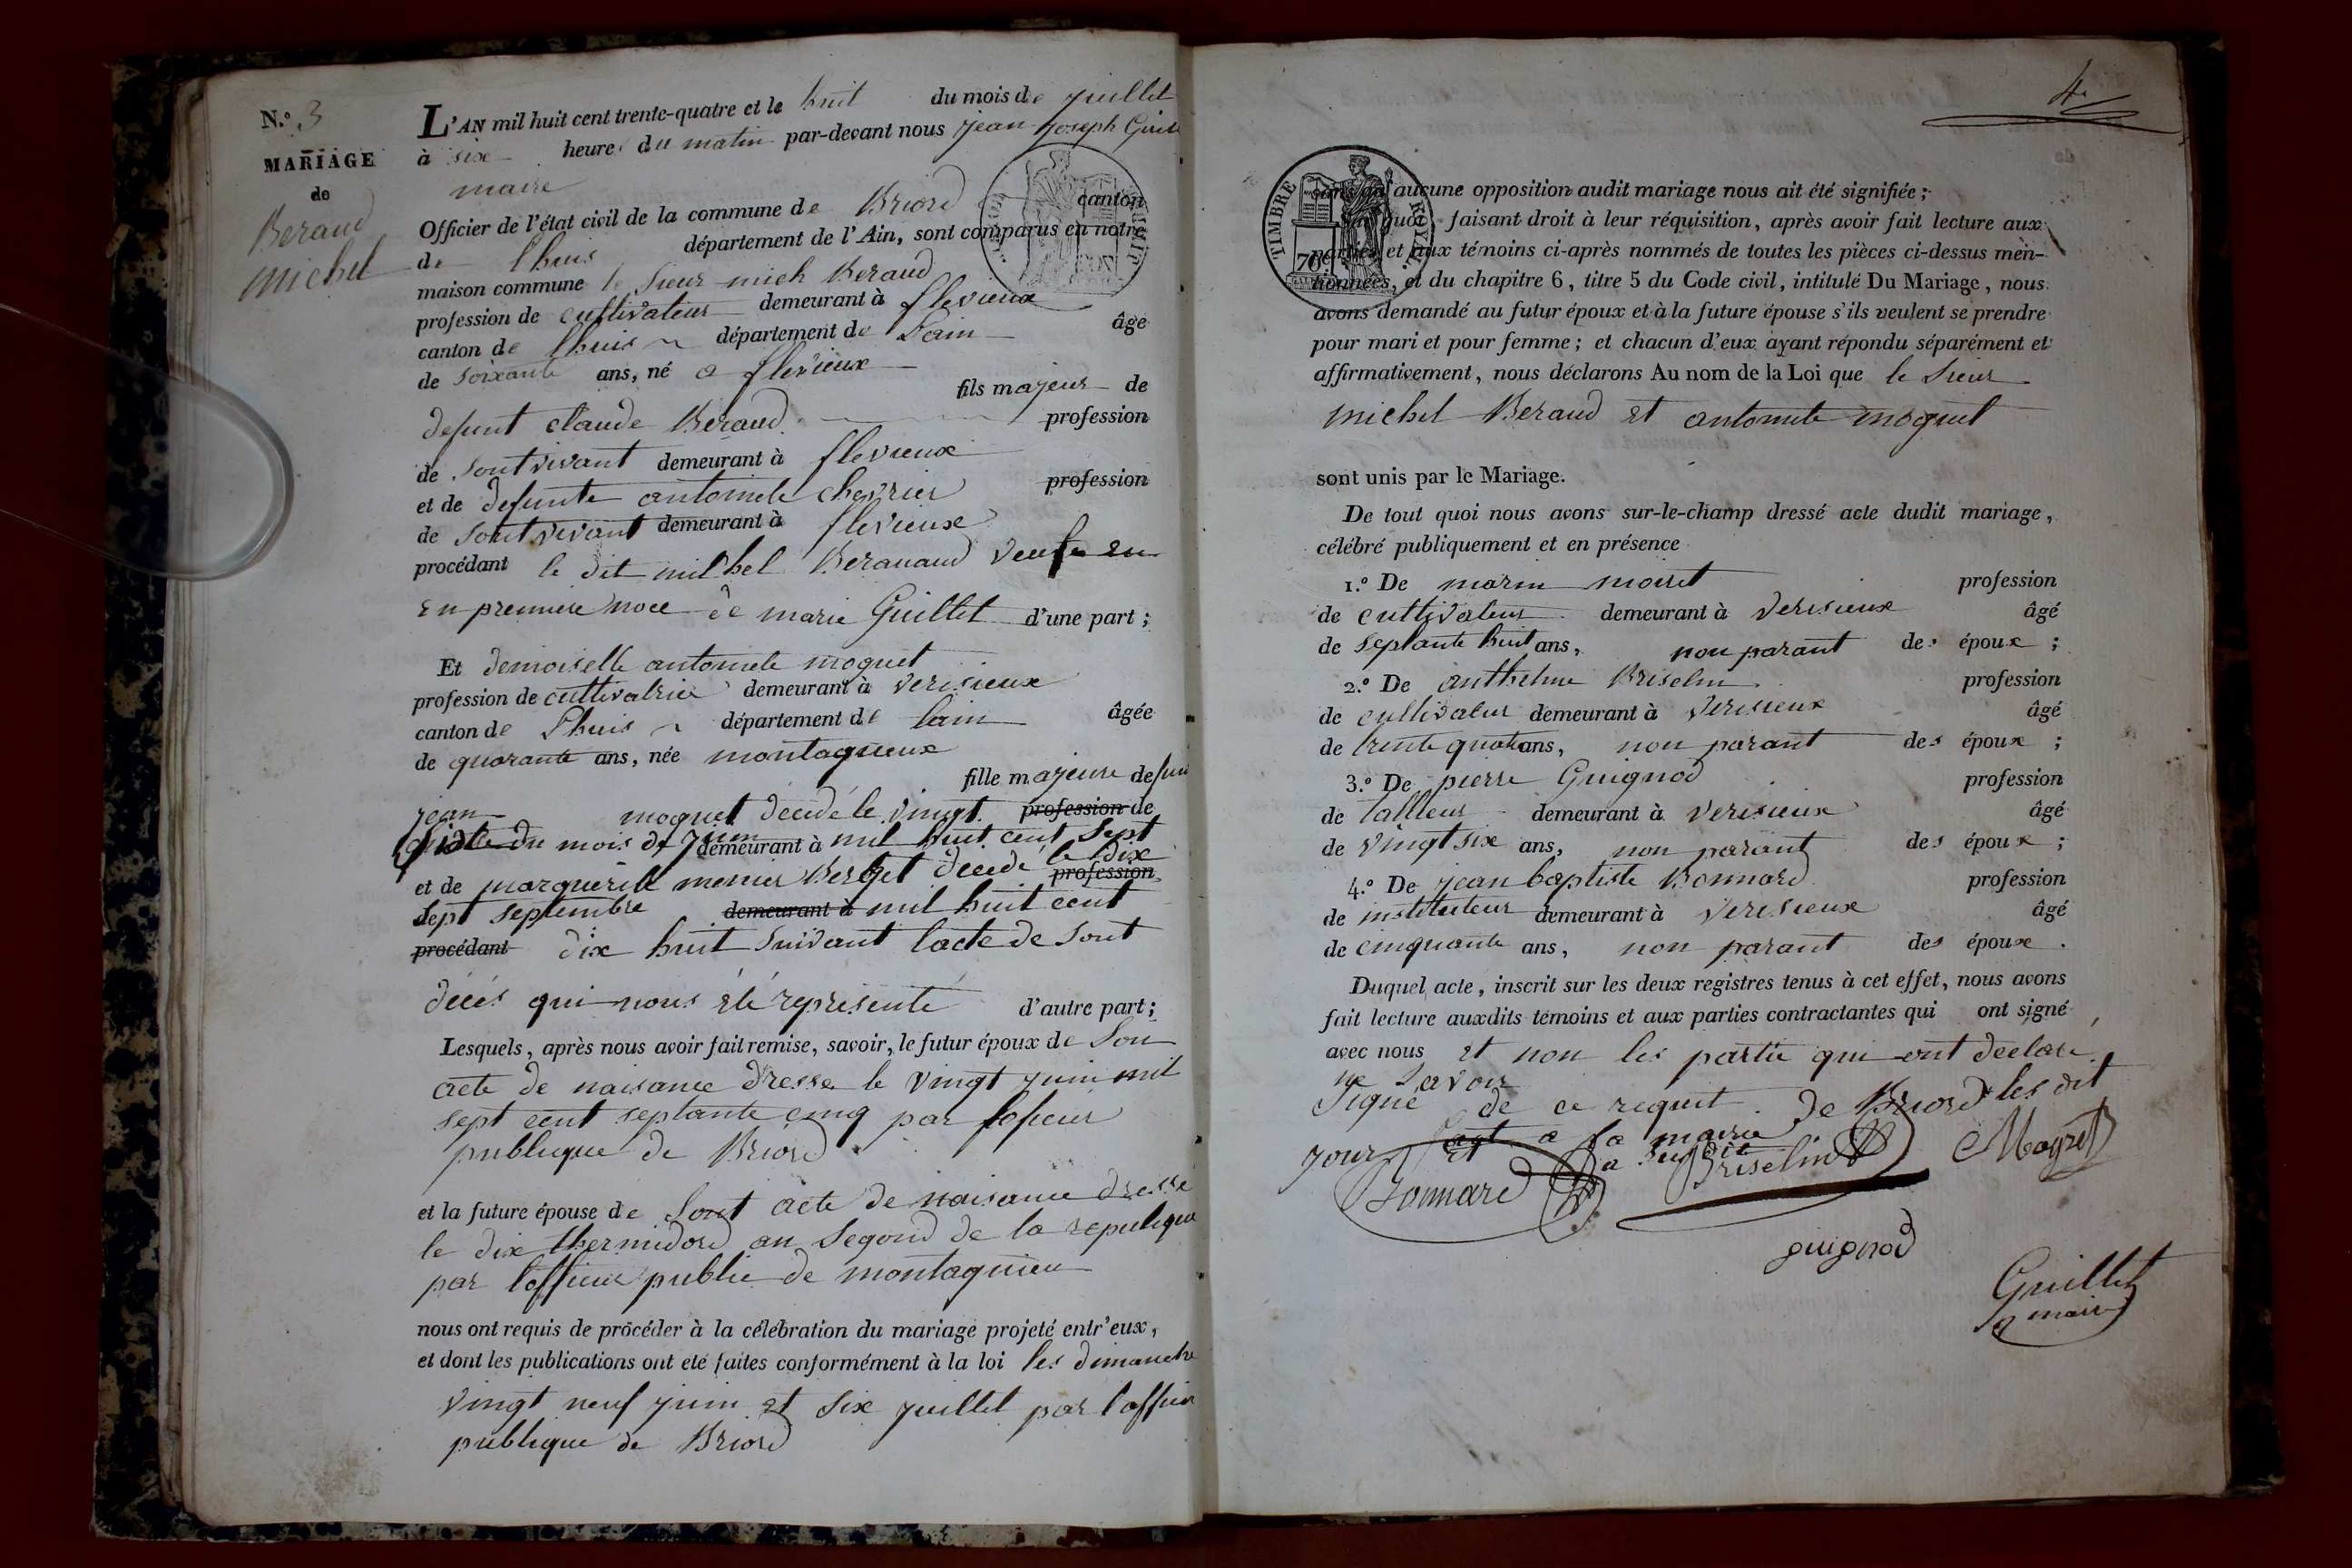 N.º 3
MARIAGE
de
Beraud
michel
L'AN mil huit cent trente-quatre et le huit du mois de juillet
à six heures du matin par-devant nous jean-joseph
maire
Officier de l'état civil de la commune de Briord canton
de lhuis département de l'Ain, sont comparus en notre
maison commune le Sieur mich Beraud
profession de cultivateur demeurant à flevieux
canton de lhuis département de Lain âgé
de soixante ans, né a flevieux
fils majeur de
defunt claude Beraud profession
de sont vivant demeurant à flevieux
et de defunte antoinete chevrier profession
de sont vivant demeurant à flevieux
procédant le dit michel Beranaud veuf en
en premiere noce de marie Guillet d'une part ;
Et demoiselle antoinete moquet
profession de cultivatrice demeurant à verisieux
canton de Lhuis département de lain âgée
de quarante ans, née montagnieux
fille majeure de
jean moquet décédé le vingt profession de
du mois de juin demeurant à mil huit cent sept
et de marguerite menier Berthet décédé le dix profession
sept septembre demeurant à mil huit cent
procédant dix huit suivant lacte de sont
décés qui nous été representé d'autre part ;
Lesquels, après nous avoir fait remise, savoir, le futur époux de Son
acte de naisance dressé le vingt juin mil
sept cent septante cinq par lofficier
publique de Briord
et la future épouse de sont acte de naisance dressé
le dix thermidord an segond de la republique
par lofficier public de montagnieu
nous ont requis de procéder à la célébration du mariage projeté entr'eux,
et dont les publications ont été faites conformément à la loi les dimanche
vingt neuf juin et six juillet par l'officier
publique de Briord
4.
TIMBRE ROYAL
sans qu'aucune opposition audit mariage nous ait été signifiée ;
quoi, faisant droit à leur réquisition, après avoir fait lecture aux
parties et aux témoins ci-après nommés de toutes les pièces ci-dessus men-
tionnées, et du chapitre 6, titre 5 du Code civil, intitulé Du Mariage, nous
avons demandé au futur époux et à la future épouse s'ils veulent se prendre
pour mari et pour femme ; et chacun d'eux ayant répondu séparément et
affirmativement, nous déclarons Au nom de la Loi que le Sieur
michel Beraud et antoinete moquet
sont unis par le Mariage.
De tout quoi nous avons sur-le-champ dressé acte dudit mariage,
célébré publiquement et en présence
1.º De marin moiret profession
de cultivateur demeurant à verisieux âgé
de septante huit ans, non parant des époux ;
2.º De anthelme Briselin profession
de cultivateur demeurant à verisieux âgé
de trente quatre ans, non parant des époux ;
3.º De pierre Guignod profession
de tallieur demeurant à verisieux âgé
de vingt six ans, non parant des époux ;
4.º De jean baptiste Bonnard profession
de instituteur demeurant à verisieux âgé
de cinquante ans, non parant des époux .
Duquel acte, inscrit sur les deux registres tenus à cet effet, nous avons
fait lecture auxdits témoins et aux parties contractantes qui ont signé
avec nous et non les partie qui ont declaré
ne savoir
signé de ce requit. de Briord les dit
jour et a la mairie
Bonnard Briselin
guignod
Guillet
maire